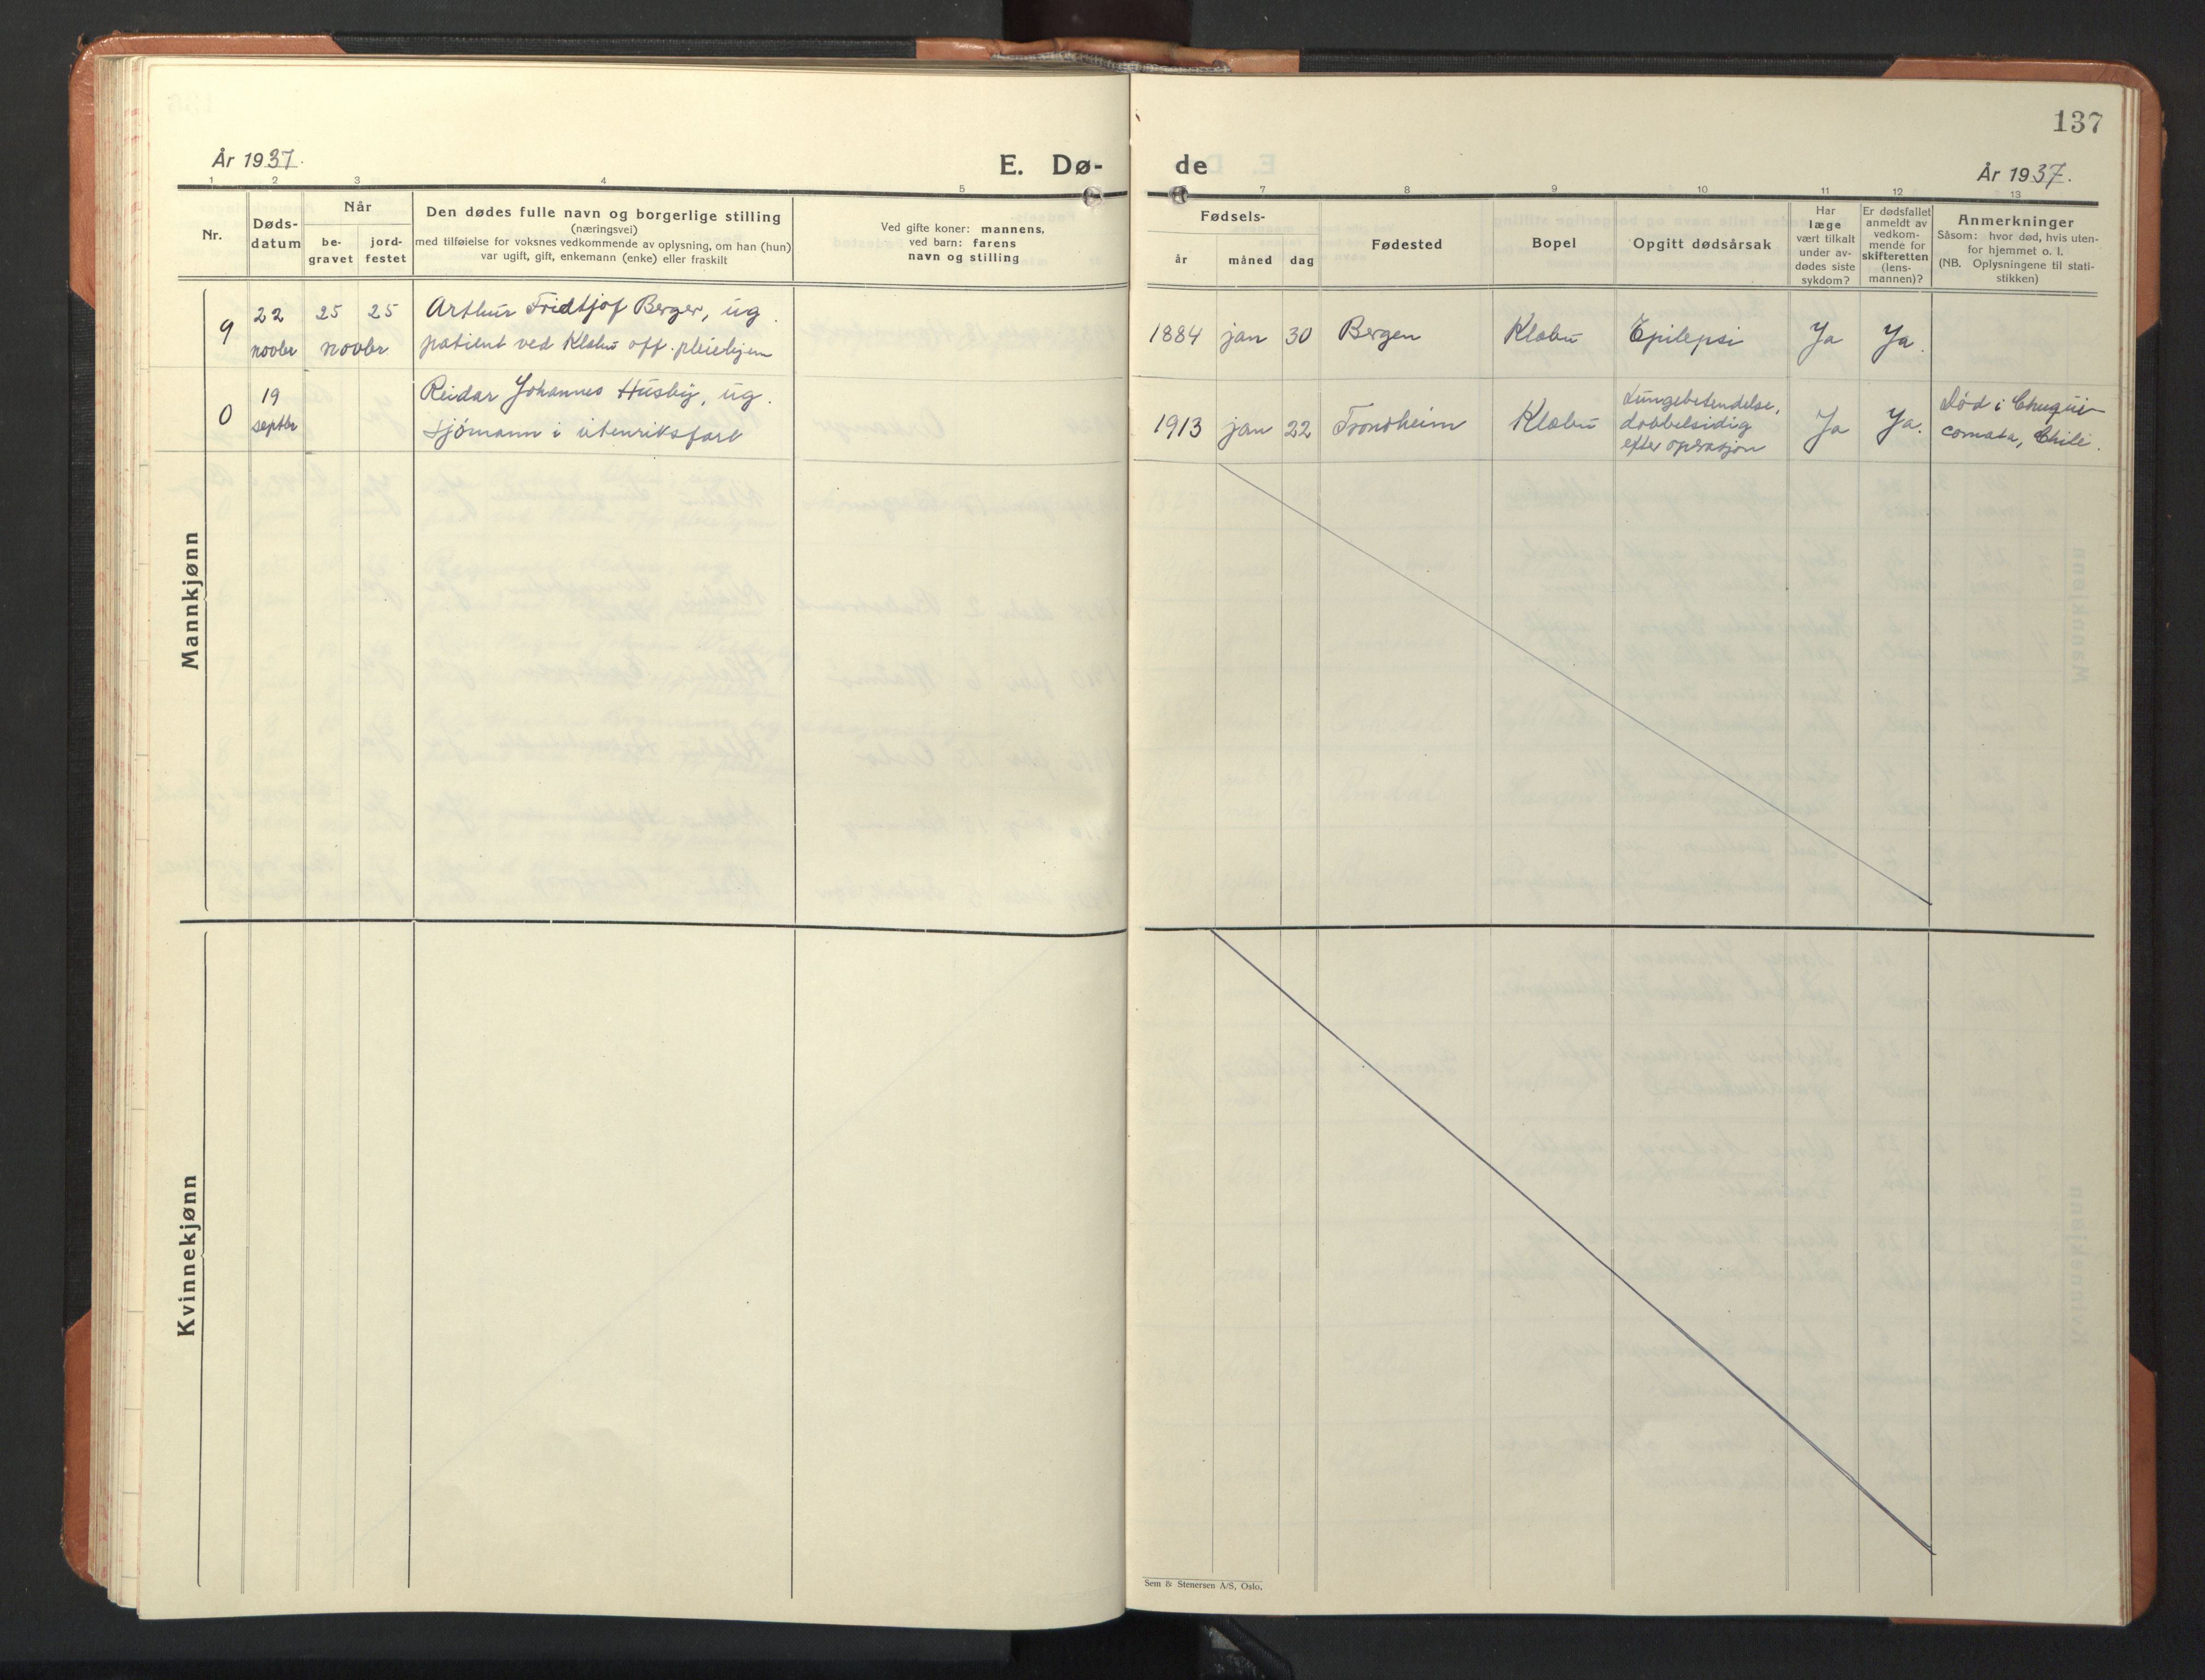 137
År 1937.
E. Dø-
de
År 1937.
1 2 3 4 5 7 8 9 10 11 12 13
Nr.
Døds-
datum
Når
be-
gravet
jord-
festet
Den dødes fulle navn og borgerlige stilling
(næringsvei)
med tilføielse for voksnes vedkommende av oplysning, om han (hun)
var ugift, gift, enkemann (enke) eller fraskilt
Ved gifte koner: mannens,
ved barn: farens
navn og stilling
Fødsels-
år
måned
dag
Fødested
Bopel
Opgitt dødsårsak
Har
læge
vært tilkalt
under av-
dødes siste
sykdom?
Er dødsfallet
anmeldt av
vedkom-
mende for
skifteretten
(lens-
mannen)?
Anmerkninger
Såsom: hvor død, hvis uten-
for hjemmet o. l.
(NB. Oplysningene til stati-
stikken)
Mannkjønn
9
22
novbr
25 25
novbr
Arthur Fridtjof Berger, ug.
patient ved Klæbu off. pleiehjem
1884 jan 30 Bergen Klæbu Epilepsi Ja Ja.
0
19
septbr
Reidar Johannes Husby, ug.
Sjömann i utenriksfart
1913 jan 22 Trondheim Klæbu
Lungebetendelse,
dobbelsidig
efter operasjon
Ja Ja.
Död i Chuqui-
comata, Chile.
Kvinnekjønn
Sem & Stenersen A/S, Oslo.